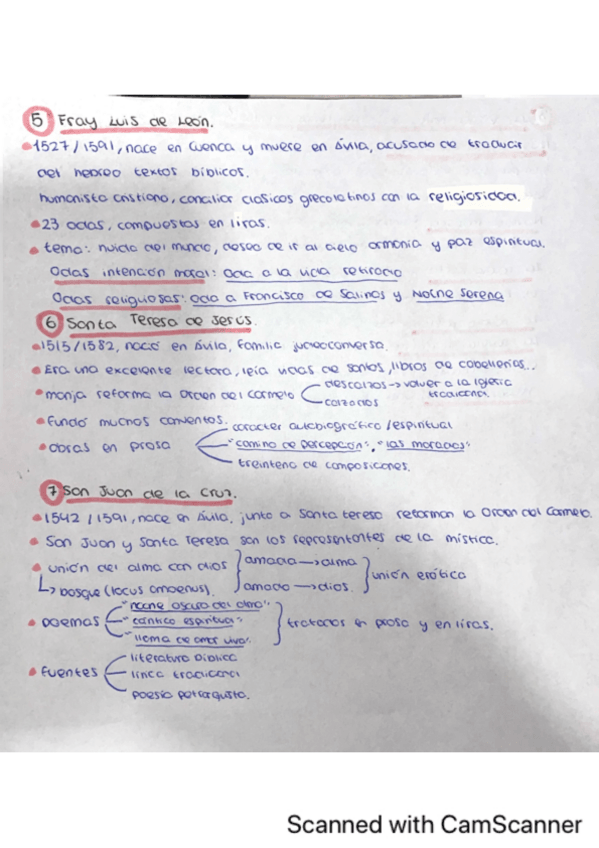 5 Fray Luis de León.
1527/1591, nace en Cuenca y muere en Ávila, acusado de traducir
del hebreo textos bíblicos.
humanista cristiano, conciliar clasicos grecolatinos con la religiosidad.
23 odas, compuestas en liras.
tema: huida del mundo, deseo de ir al cielo armonia y paz espiritual.
Odas intención moral: Oda a la vida retirada
Odas religiosas: oda a Francisco de Salinas y Noche Serena
6 Santa Teresa de Jesús.
1515/1582, nació en Ávila, familia judeoconversa.
Era una excelente lectora, leía vidas de santos, libros de caballerias...
monja reforma la Orden del Carmelo
descalzos → volver a la Iglesia tradicional.
calzados
fundó muchos conventos.
obras en prosa
caracter autobiográfico/espiritual
"camino de percepción", "las moradas"
treintena de composiciones.
7 San Juan de la Cruz.
1542/1591, nace en Ávila, junto a Santa teresa reforman la Orden del Carmelo.
San Juan y Santa Teresa son los representantes de la mística.
unión del alma con dios
amada → alma
amado → dios.
unión erótica
bosque (locus amoenus).
poemas
"noche oscura del alma"
"cántico espiritual"
"llama de amor viva"
tratados en prosa y en liras.
fuentes
literatura bíblica
lírica tradicional
poesía petrarquista.
Scanned with CamScanner